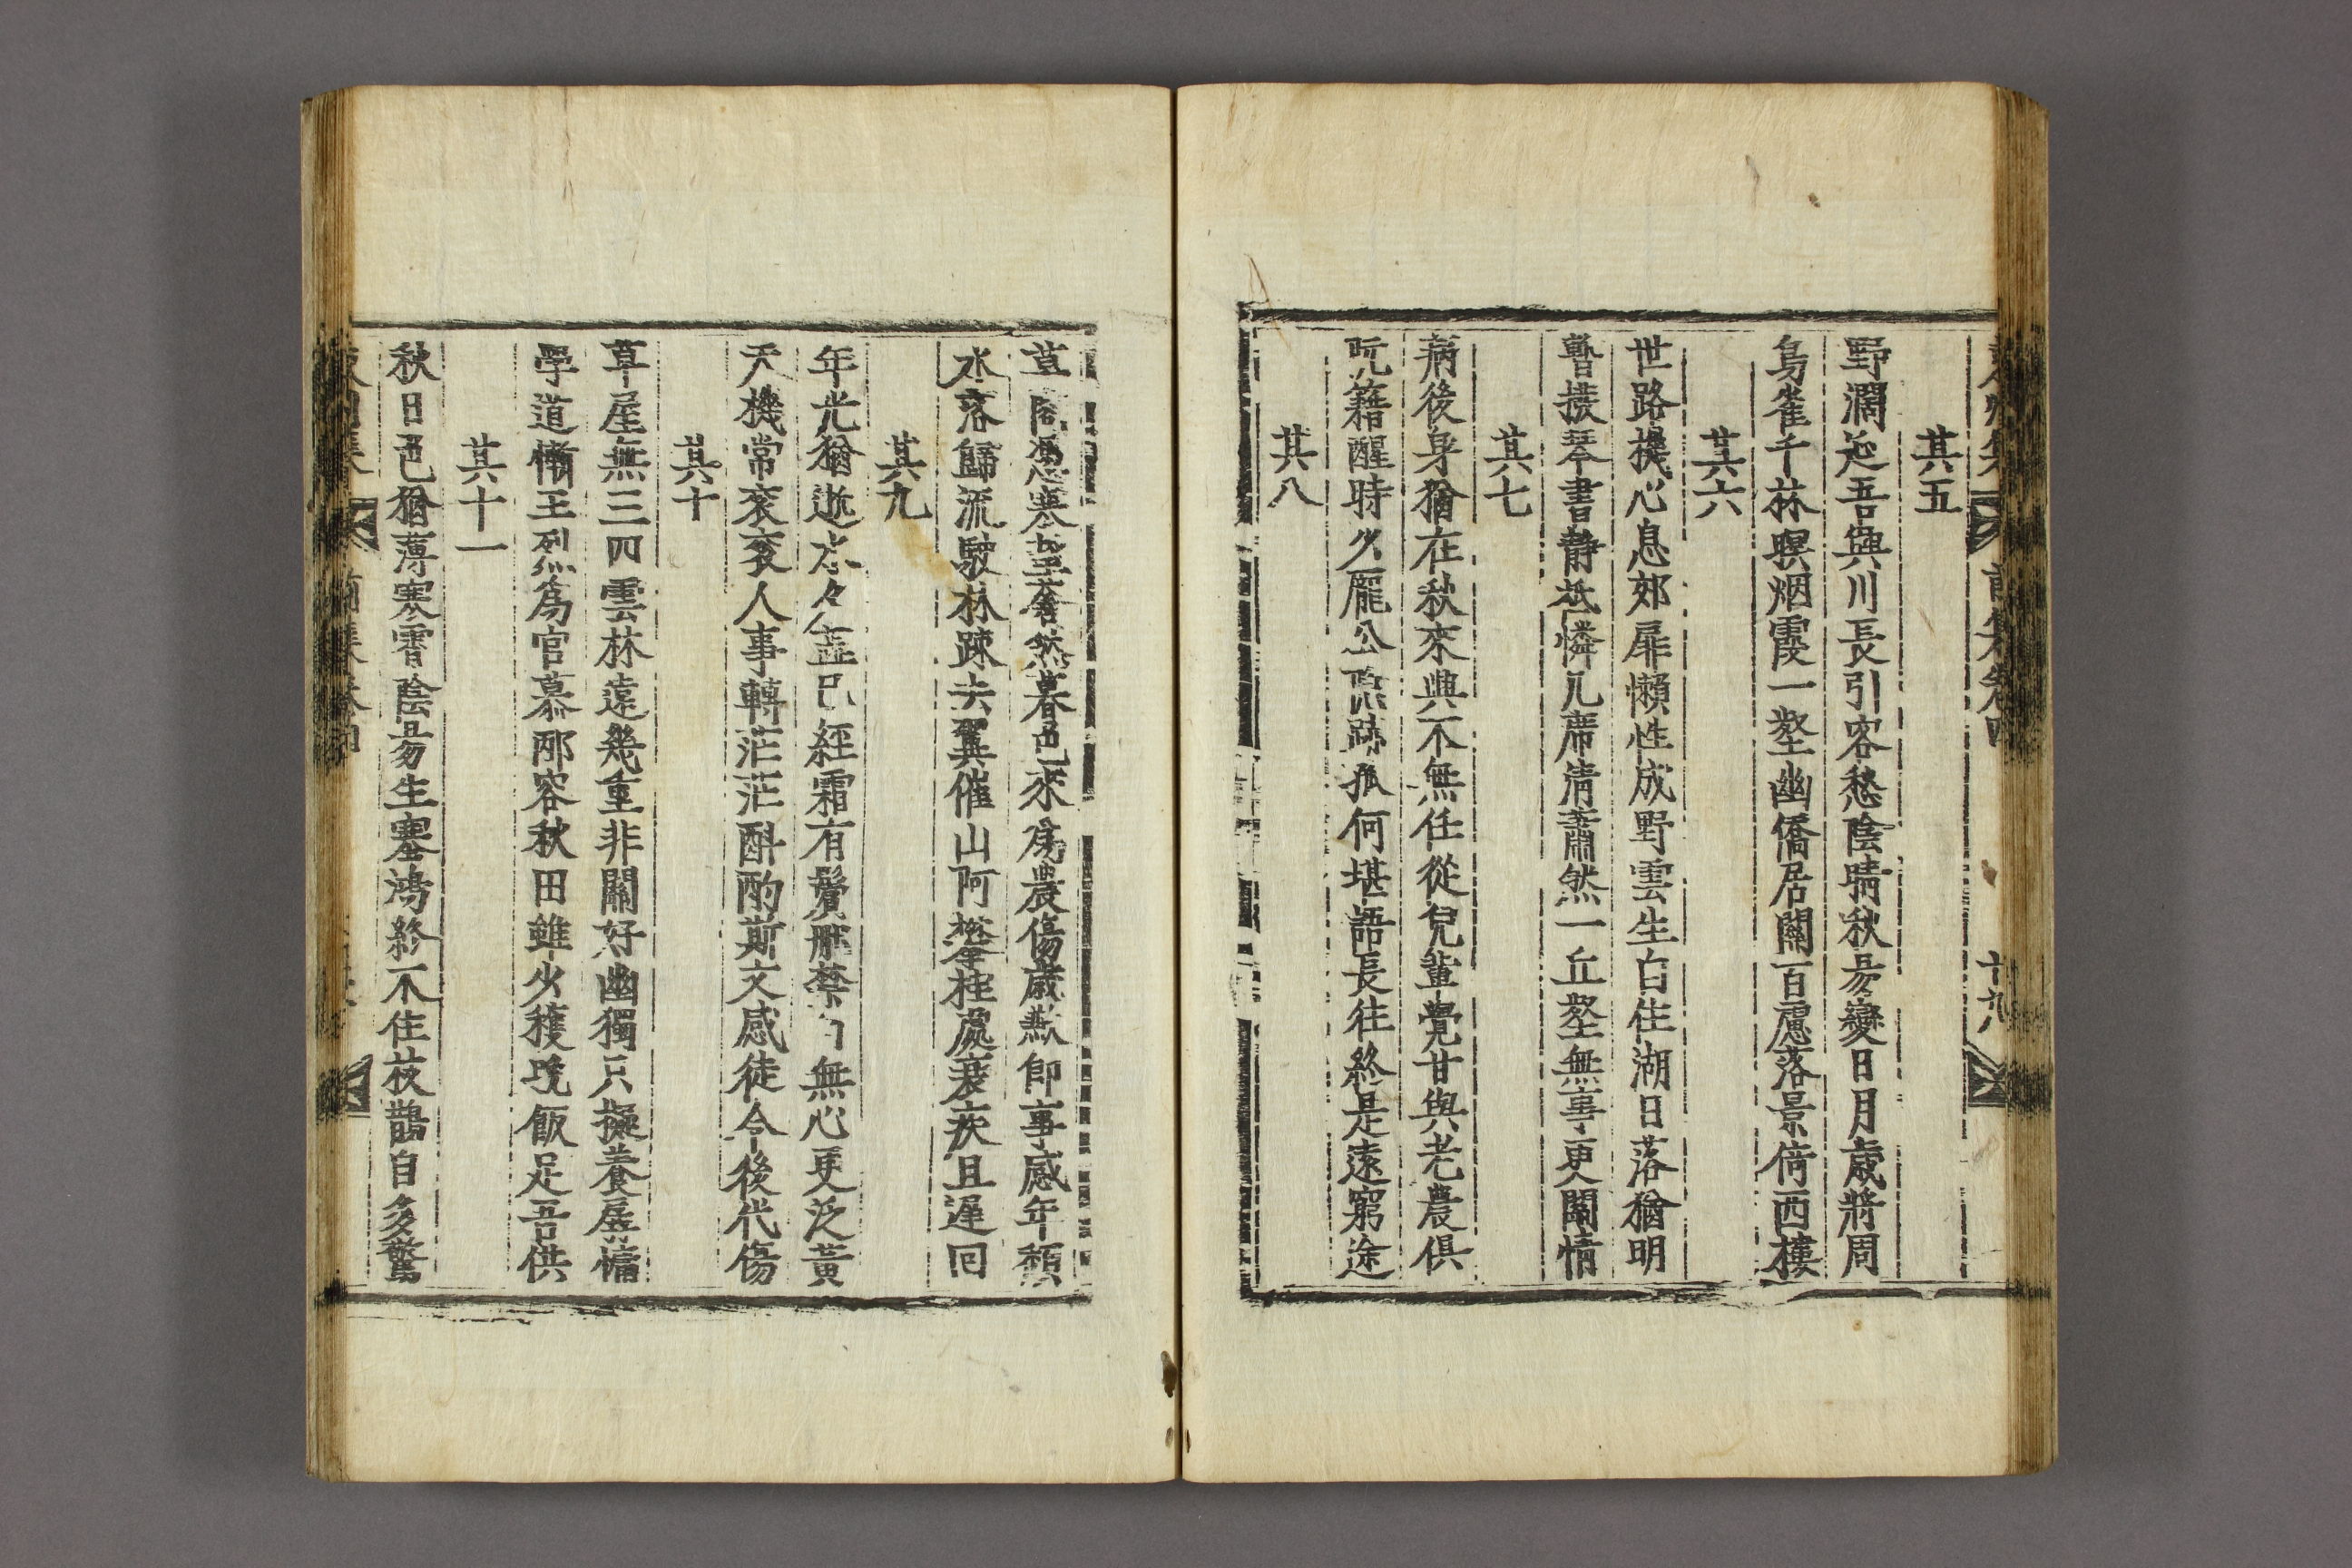 其五
野濶延吾與川長引客愁陰晴秋易變日月歲將周
烏雀千林暝烟霞一壑幽僑居關百慮落景倚西樓
其六
世路機心息郊扉懶性成野雲生白住湖日落猶明
暫撥琴書靜袛憐几席淸蕭然一丘壑無事更關情
其七
病後身猶在秋來興不無任從兒輩覺甘與老農俱
阮籍醒時少龐公隱跡孤何堪語長往終是遠窮途
其八
草閣憑寒望蒼然暮色來爲農傷歲歉卽事感年頹
水落歸流駛林踈去翼催山阿攀桂處衰疾且遲回
其九
年光猶逝水々
已經霜有鬢
無心更泛黃
天機常衮衮人事轉茫茫酣酌斯文感徒令後代傷
其十
草屋無三四雲林遠幾重非關好幽獨只擬養孱慵
學道慚王烈爲官慕邴容秋田雖少穫晚飯足吾供
其十一
秋日色猶薄寒霄陰易生塞鴻終不住枝鵲自多驚